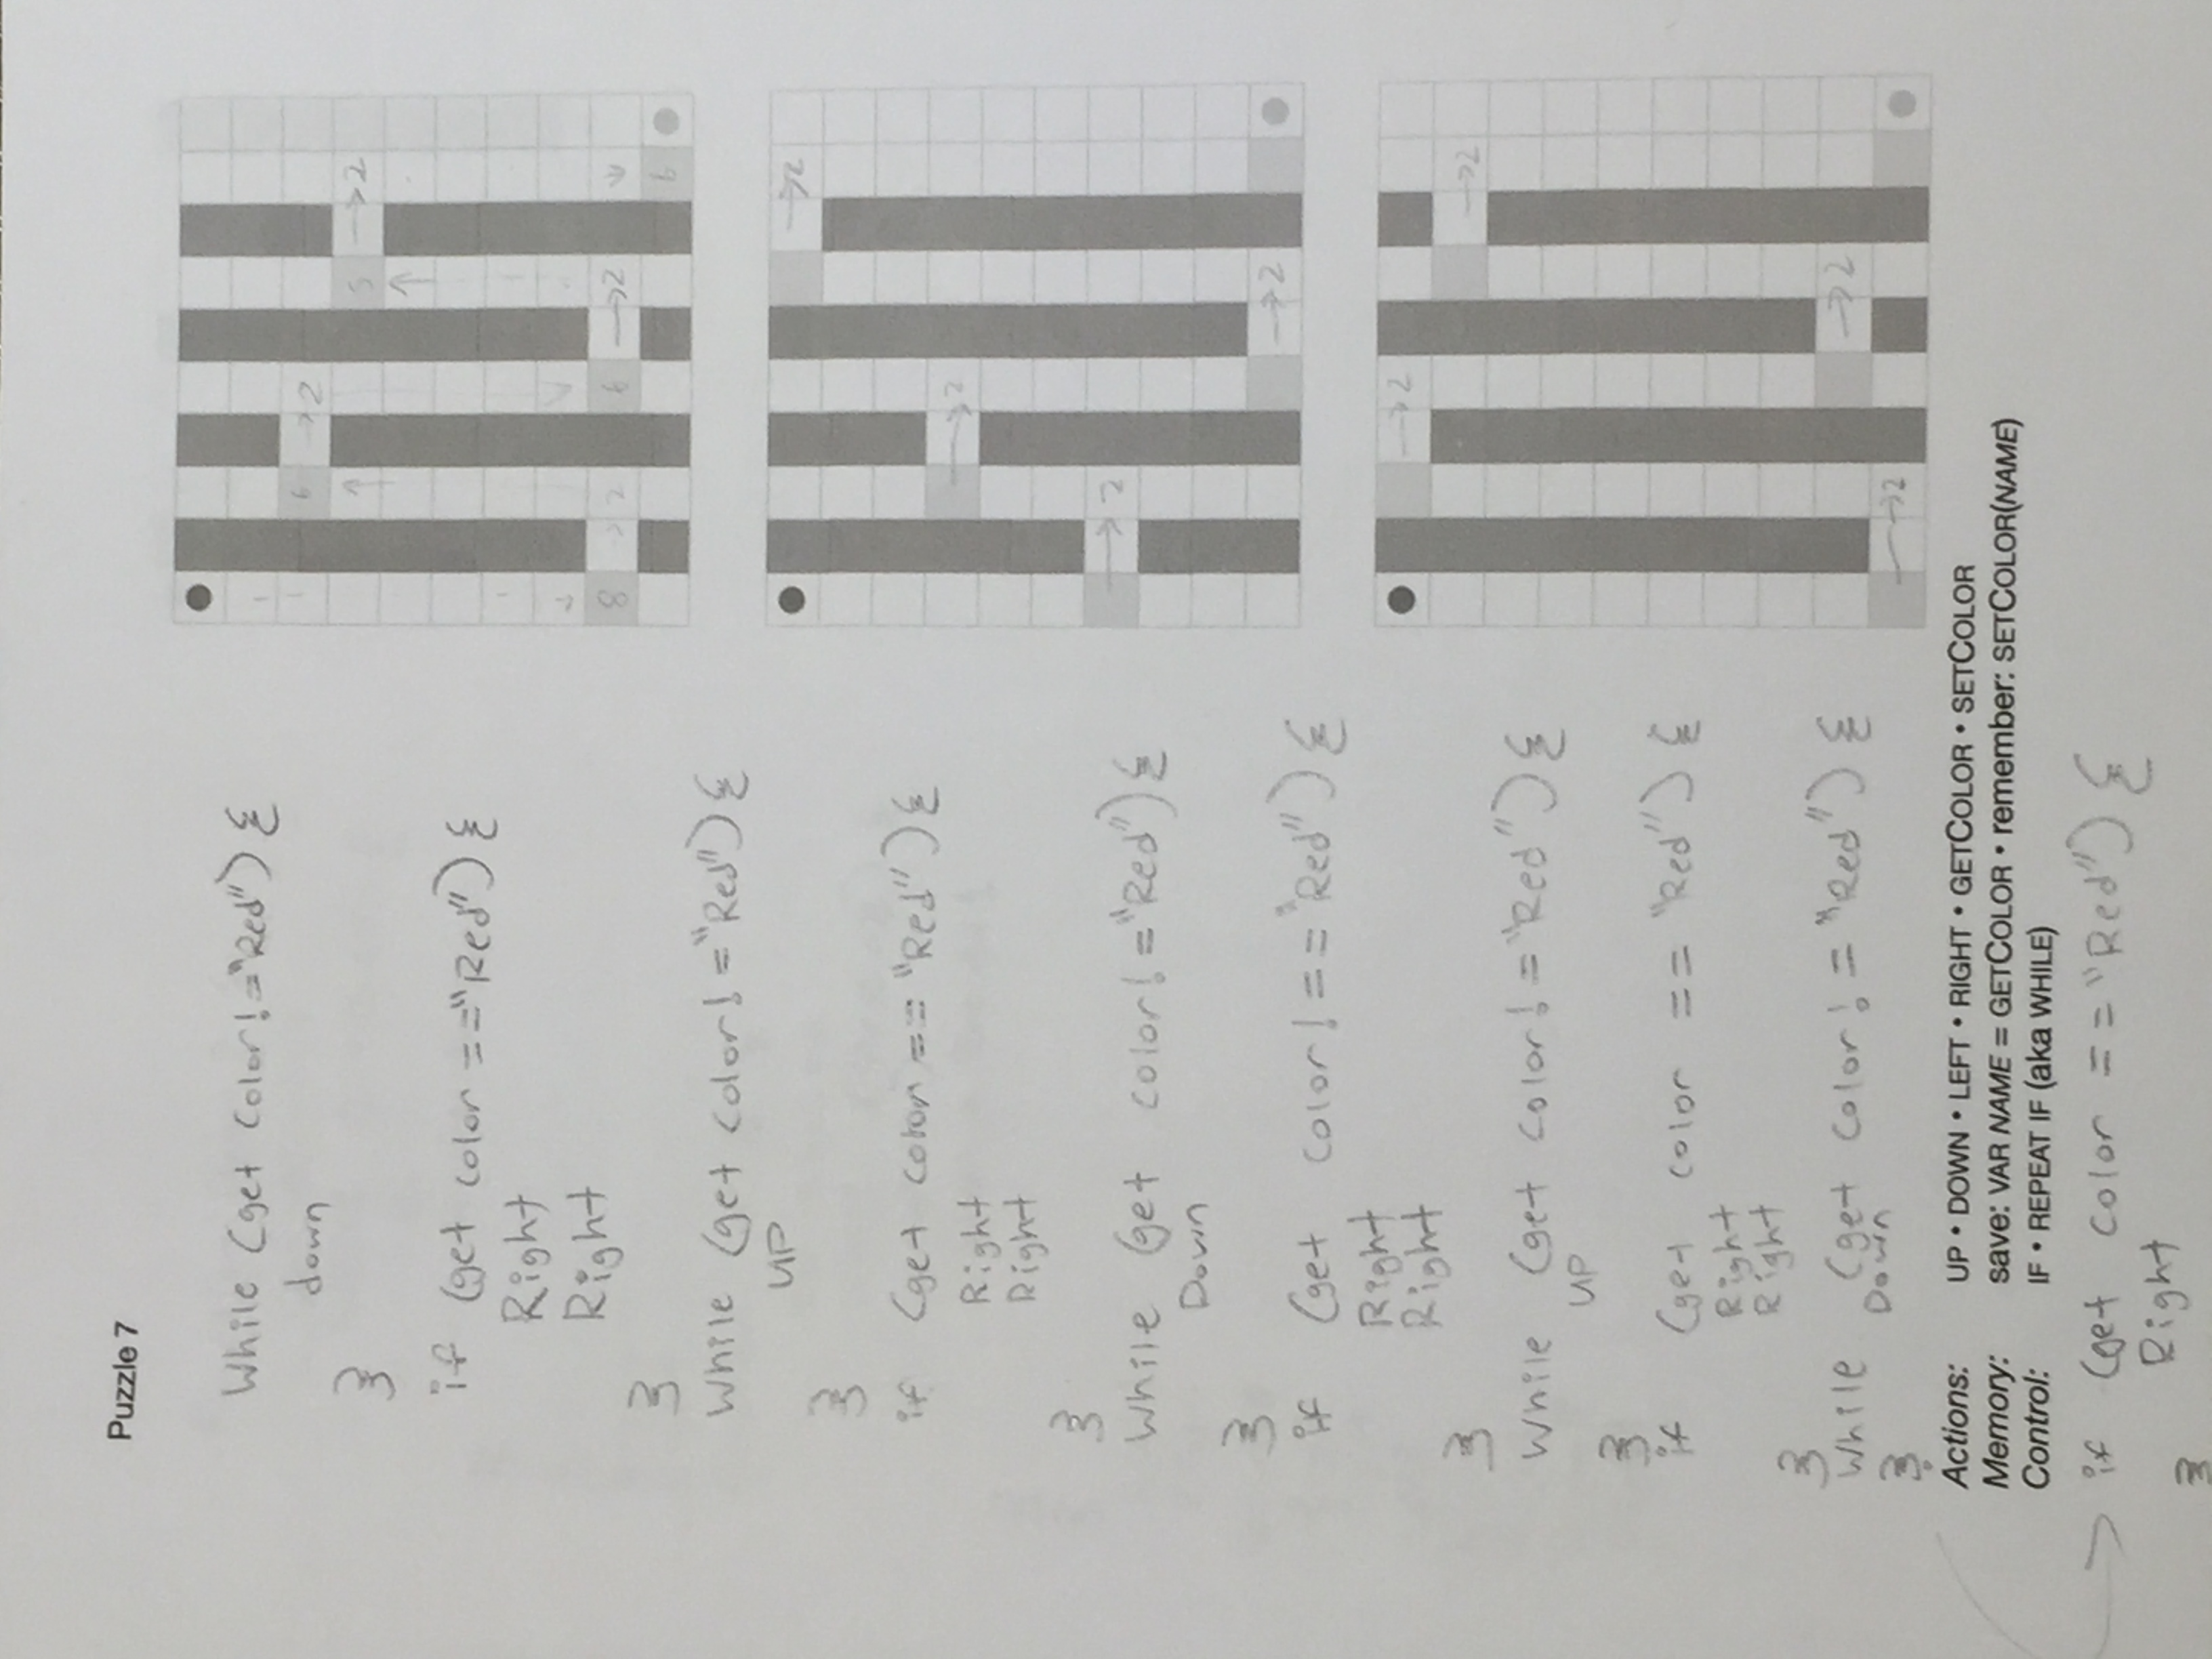 Puzzle 7
While (get color!="Red") {
down
}
if (get color =="Red") {
Right
Right
}
While (get color! ="Red") {
UP
}
if (get color == "Red") {
Right
Right
}
While (get color! ="Red") {
Down
}
if (get color! == "Red") {
Right
Right
}
While (get color! = "Red") {
UP
}
if (get color == "Red") {
Right
Right
}
While (get color! = "Red") {
Down
}
Actions: UP • DOWN • LEFT • RIGHT • GETCOLOR • SETCOLOR
Memory: save: VAR NAME = GETCOLOR • remember: SETCOLOR(NAME)
Control: IF • REPEAT IF (aka WHILE)
→ if (get color == "Red") {
Right
}
6 → 2
5 → 2
8 → 2 6 → 2
6
→ 2
→ 2
→ 2
→ 2
→ 2
→ 2
→ 2
→ 2